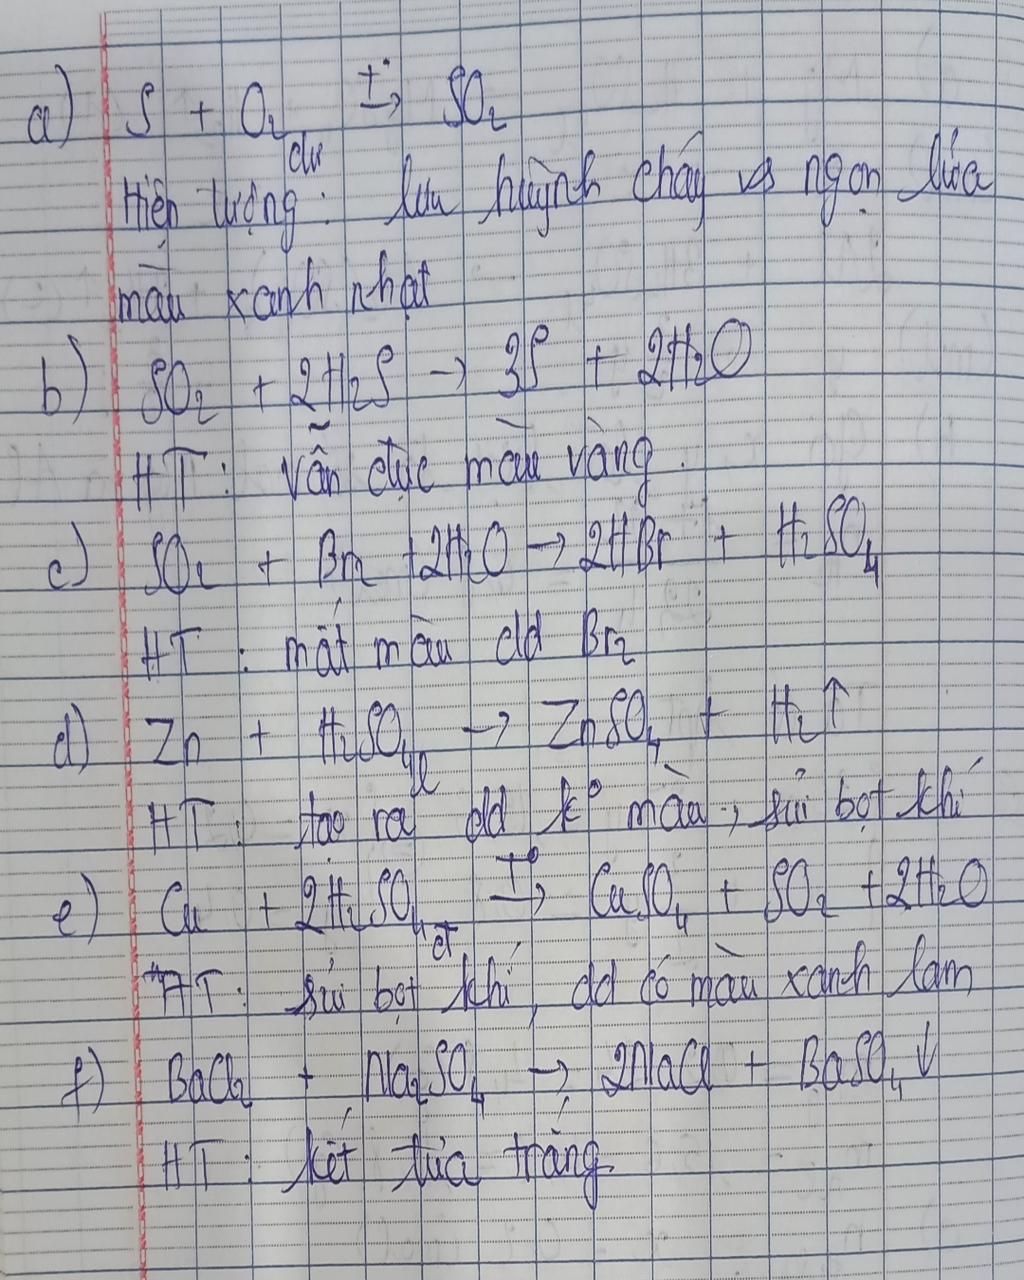 a) S + O₂ dư t°→ SO₂
Hiện tượng: lưu huỳnh cháy vs ngọn lửa
màu xanh nhạt
b) SO₂ + 2H₂S → 3S + 2H₂O
HT: vẫn đục màu vàng.
c) SO₂ + Br₂ + 2H₂O → 2HBr + H₂SO₄
HT: mất màu dd Br₂
d) Zn + H₂SO₄ l → ZnSO₄ + H₂↑
HT: tạo ra dd k° màu, sủi bọt khí
e) Cu + 2H₂SO₄ đ T°→ CuSO₄ + SO₂ + 2H₂O
HT: sủi bọt khí, dd có màu xanh lam
f) BaCl₂ + Na₂SO₄ → 2NaCl + BaSO₄↓
HT: kết tủa trắng